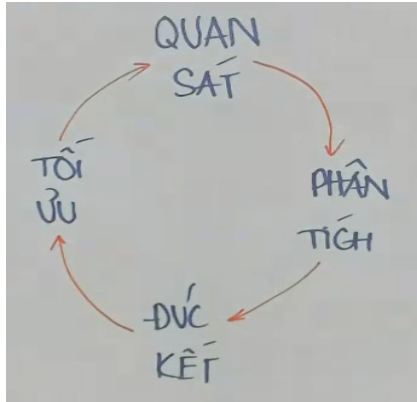 QUAN
SÁT
PHÂN
TÍCH
ĐÚC
KẾT
TỐI
ƯU